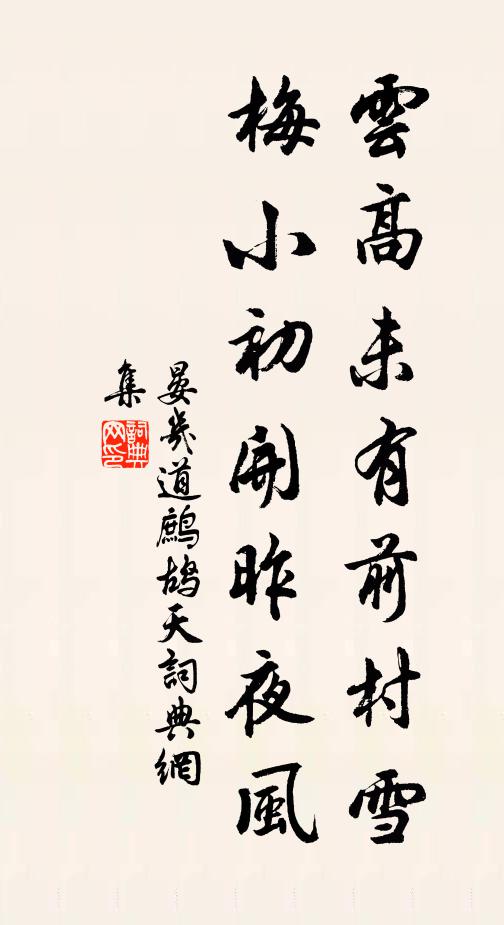 雲高未有前村雪
梅小初開昨夜風
晏幾道鷓鴣天詞典網
集
詞典网印